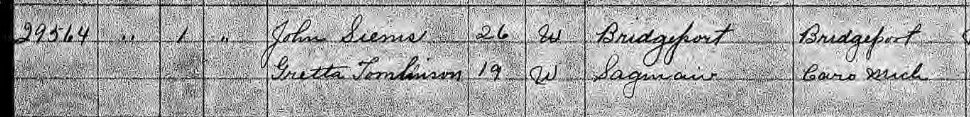 29564 " 1 " John Siems 26 W Bridgeport Bridgeport
Gretta Tomlinson 19 W Saginaw Caro Mich